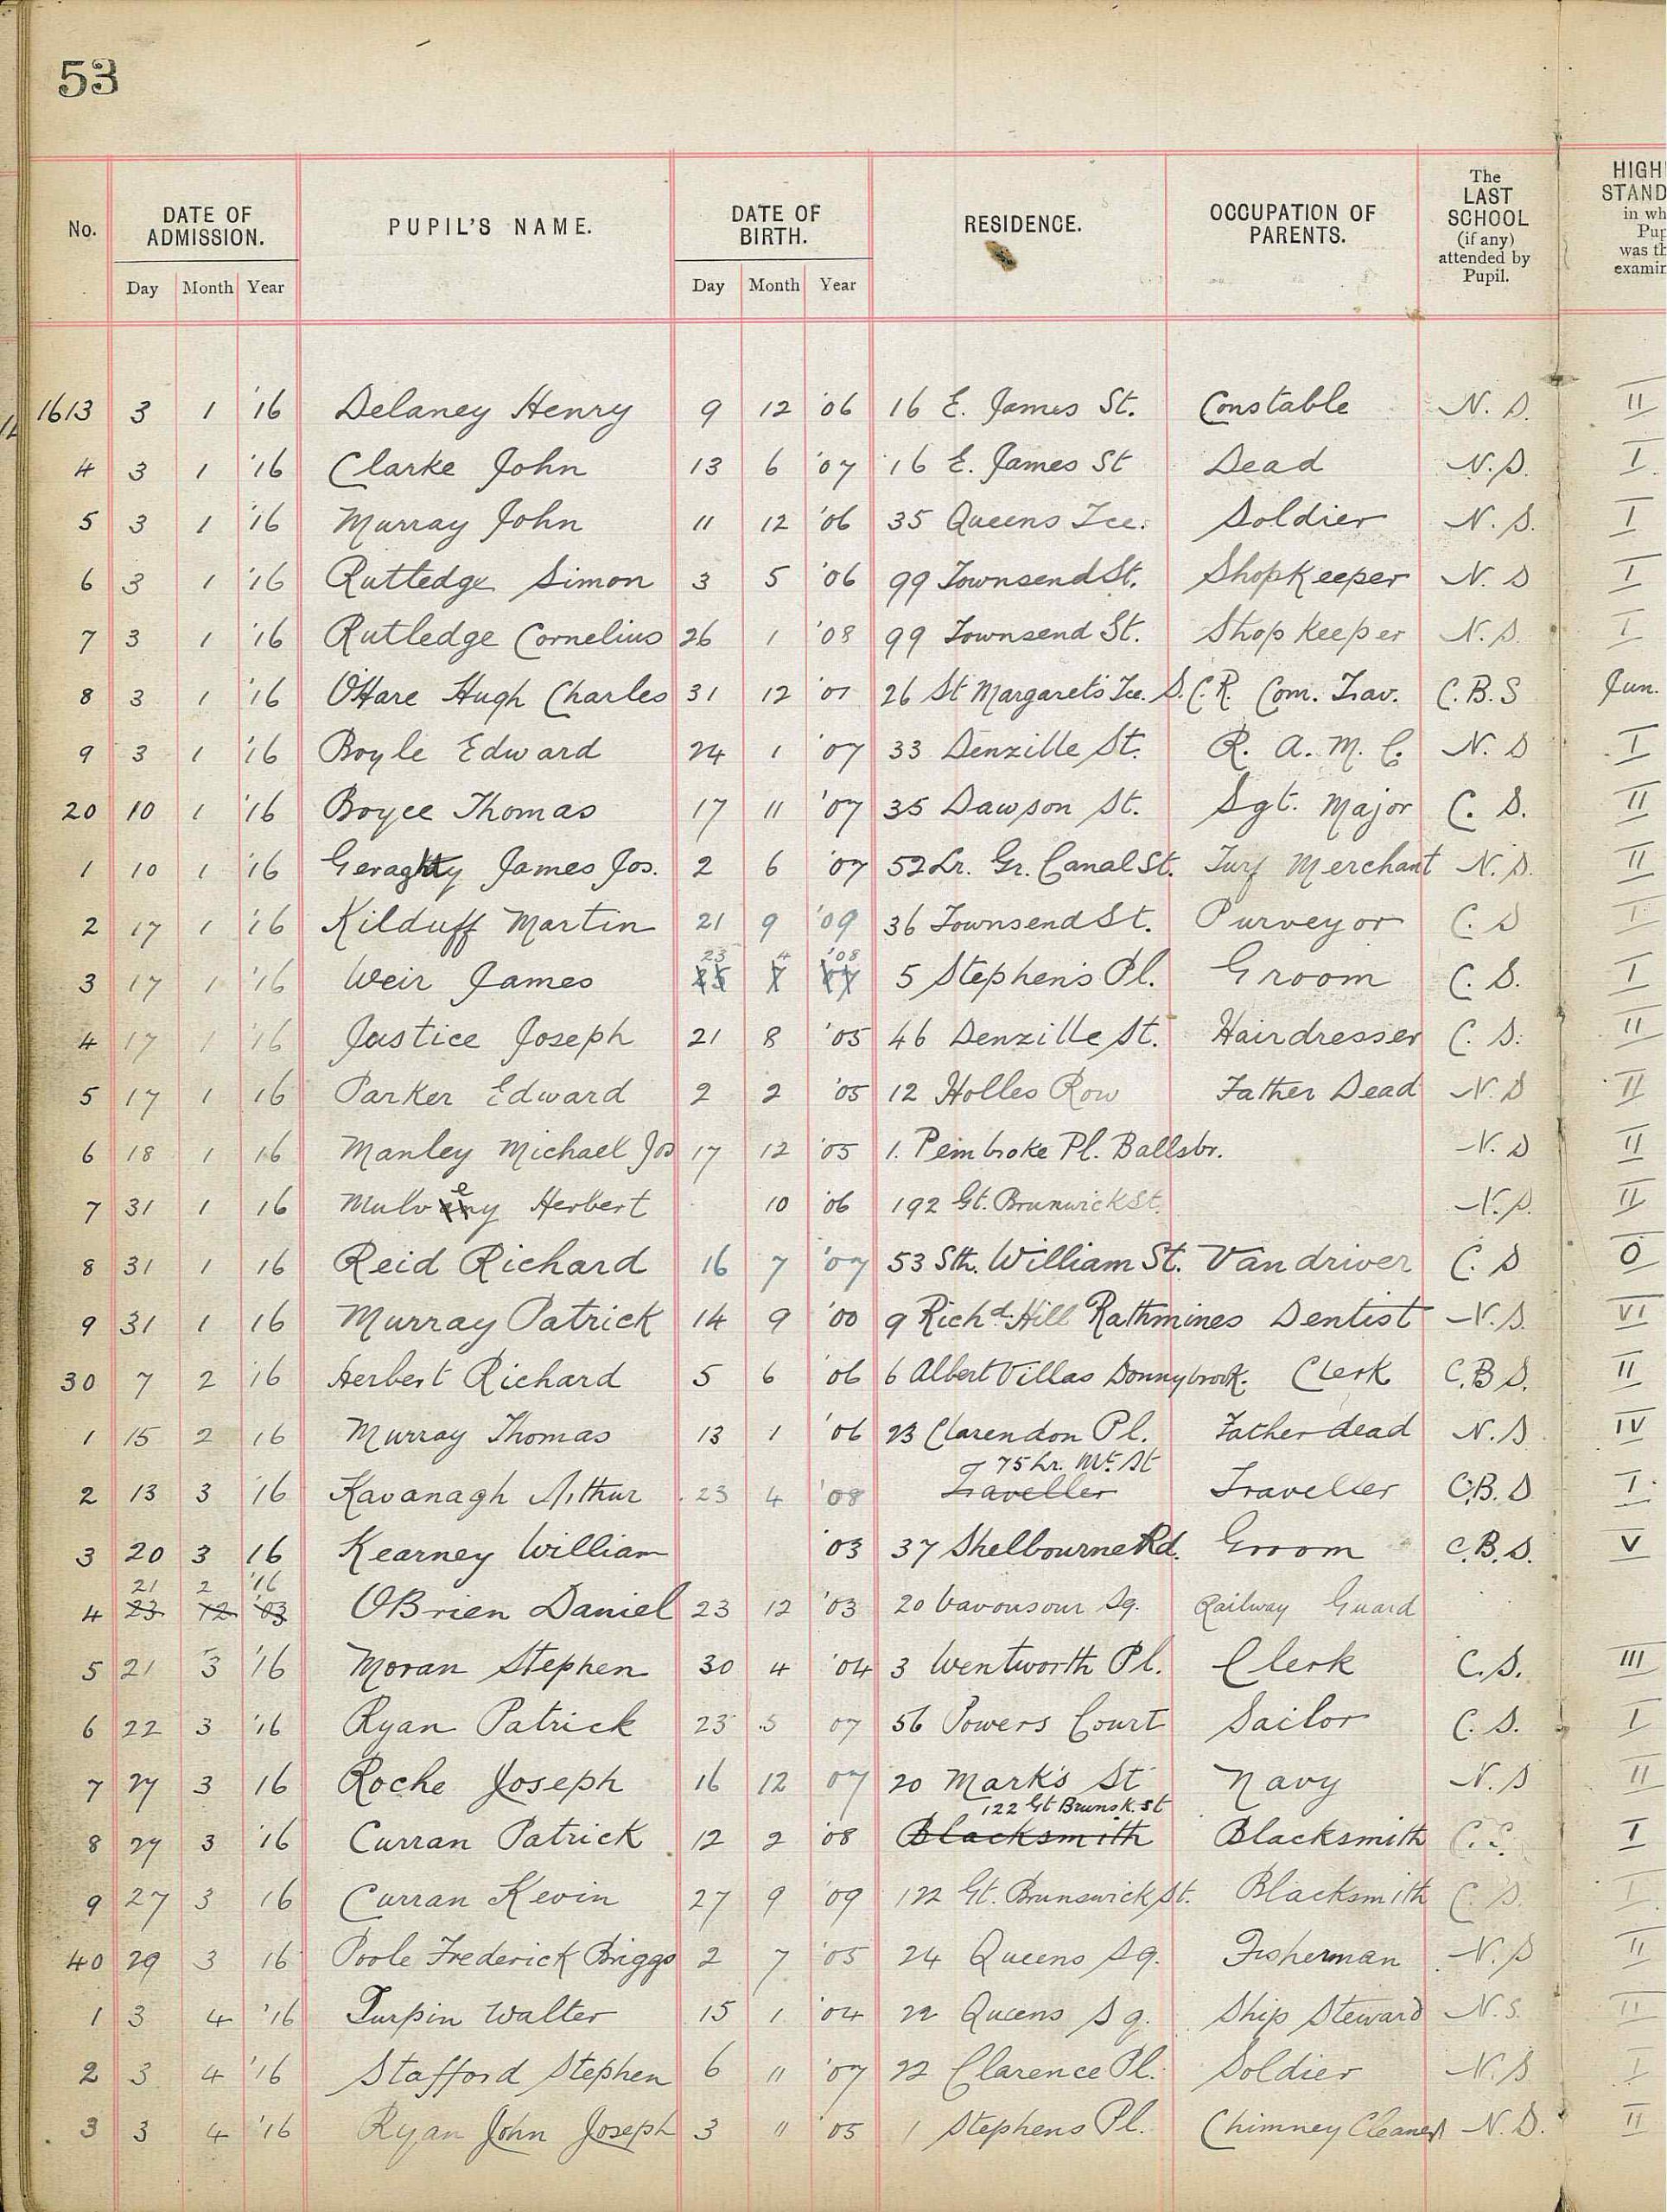 53
No. DATE OF ADMISSION. PUPIL'S NAME. DATE OF BIRTH. RESIDENCE. OCCUPATION OF PARENTS. The LAST SCHOOL (if any) attended by Pupil. HIGH STAND in wh Pup was th examin
Day Month Year Day Month Year
1613 3 1 '16 Delaney Henry 9 12 '06 16 E. James St. Constable N. S. II
4 3 1 '16 Clarke John 13 6 '07 16 E. James St Dead N.S. I
5 3 1 '16 Murray John 11 12 '06 35 Queens Tce. Soldier N. S. I
6 3 1 '16 Rutledge Simon 3 5 '06 99 Townsend St. Shopkeeper N. S I
7 3 1 '16 Rutledge Cornelius 26 1 '08 99 Townsend St. Shopkeeper N. S. I
8 3 1 '16 O'Hare Hugh Charles 31 12 '07 26 St Margaret's Tce. S.C.R. Com. Trav. C.B.S Jun.
9 3 1 '16 Boyle Edward 24 1 '07 33 Denzille St. R. A. M. C. N. S I
20 10 1 '16 Boyce Thomas 17 11 '07 35 Dawson St. Sgt. Major C. S. II
1 10 1 '16 Geraghty James Jos. 2 6 '07 52 Lr. Gr. Canal St. Turf Merchant N. S. II
2 17 1 '16 Kilduff Martin 21 9 '09 36 Townsend St. Purveyor C. S I
23 4 '08
3 17 1 '16 Weir James 5 Stephen's Pl. Groom C. S. I
4 17 1 '16 Justice Joseph 21 8 '05 46 Denzille St. Hairdresser C. S. II
5 17 1 16 Parker Edward 2 2 '05 12 Holles Row Father Dead N. S II
6 18 1 16 Manley Michael Jos 17 12 '05 1. Pembroke Pl. Ballsbr. N. S II
7 31 1 16 Mulvey Herbert 10 '06 192 Gt. Brunwick St. N. S. II
8 31 1 16 Reid Richard 16 7 '07 53 Sth. William St. Van driver C. S O
9 31 1 16 Murray Patrick 14 9 '00 9 Richd. Hill Rathmines Dentist N. S. VI
30 7 2 '16 Herbert Richard 5 6 '06 6 Albert Villas Donnybrook. Clerk C.B S. II
1 15 2 16 Murray Thomas 13 1 '06 23 Clarendon Pl. Father dead N. S IV
75 Lr. Mt. St
2 13 3 '16 Kavanagh Arthur 23 4 '08 Traveller Traveller C.B. S I
3 20 3 16 Kearney William '03 37 Shelbourne Rd. Groom C.B.S. V
21 2 '16
4 23 12 '03 O'Brien Daniel 23 12 '03 20 Vavousour Sq. Railway Guard
5 21 3 '16 Moran Stephen 30 4 '04 3 Wentworth Pl. Clerk C.S. III
6 22 3 '16 Ryan Patrick 23 5 07 56 Powers Court Sailor C. S. I
7 27 3 16 Roche Joseph 16 12 07 20 Mark's St Navy N. S II
122 Gt Brunsk. St
8 27 3 '16 Curran Patrick 12 2 '08 Blacksmith Blacksmith C. S. I
9 27 3 16 Curran Kevin 27 9 '09 122 Gt. Brunswick St. Blacksmith C. S. I
40 29 3 16 Poole Frederick Briggs 2 7 '05 24 Queens Sq. Fisherman N. S II
1 3 4 '16 Turpin Walter 15 1 '04 22 Queens Sq. Ship Steward N. S. II
2 3 4 '16 Stafford Stephen 6 11 '07 22 Clarence Pl. Soldier N. S I
3 3 4 '16 Ryan John Joseph 3 11 '05 1 Stephens Pl. Chimney Cleaner N. S. II